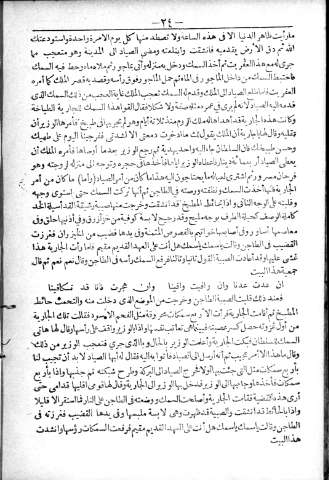 — ٢٤ —
مارأيت ظاهر الدنيا الا فى هذه الساعة ولا تصطد منها كل يوم الا مرة واحدة واستودعتك
الله ثم دق الارض بقدميه فانشقت وابتلعته ومضى الصياد الى المدينة وهو متعجب مما
جرى له مع هذا العفريت ثم أخذ السمك ودخل به منزله وأتى بماجور ثم ملأه ماء وحط فيه السمك
فاختبط السمك من داخل الماجور فى الماء ثم حمل الماجور فوق رأسه وقصد به قصر الملك كما أمره
العفريت فلما طلع الصياد الى الملك وقدم له السمك تعجب الملك غاية العجب من ذلك السمك الذى
قدمه اليه الصياد لانه لم ير فى عمره مثله صفة ولا شكلا فقال القوا هذا السمك للجارية الطباخة
وكانت هذه الجارية قد أهداها له ملك الروم منذ ثلاثة أيام وهو لم يجربها فى طبيخ فأمرها الوزير أن
تقليه وقال لها يا جارية ان الملك يقول لك ما ادخرت دمعتى الا لشدتى ففرجينا اليوم على طهيك
وحسن طبيخك فان السلطان جاء اليه واحد بهدية ثم رجع الوزير بعد ما أوصاها فأمره الملك أن
يعطى الصياد أربعمائة دينار فاعطاه الوزير اياها فأخذها فى حجره وتوجه الى منزله لزوجته وهو
فرحان مسرور ثم اشترى لعياله ما يحتاجون اليه هذا ما كان من أمر الصياد (وأما) ما كان من أمر
الجارية فانها أخذت السمك ونظفته ورصته فى الطاجن ثم انها تركت السمك حتى استوى وجهه
وقلبته على الوجه الثانى واذا بحائط المطبخ قد انشقت وخرجت منها صبية رشيقة القد أسيلة الخد
كاملة الوصف كحيلة الطرف بوجه مليح وقد رجيح لابسة كوفية من خز أزرق وفى أذنيها حلق وفى
معاصمها أساور وفى أصابعها خواتيم بالفصوص المثمنة وفى يدها قضيب من الخيزران فغرزت
القضيب فى الطاجن وقالت يا سمك يا سمك هل أنت على العهد القديم مقيم فلما رأت الجارية هذا
غشى عليها وقد أعادت الصبية القول ثانيا وثالثا فرفع السمك رأسه فى الطاجن وقال نعم نعم ثم قال
جميعه هذا البيت
ان عدت عدنا وان وافيت وافينا وان هجرت فانا قد تكافينا
فعند ذلك قلبت الصبية الطاجن وخرجت من الموضع الذى دخلت منه والتحمت حائط
المطبخ ثم قامت الجارية فرأت الاربع سمكات محروقة مثل الفحم الاسود فقالت تلك الجارية
من أول غزوته حصل كسر عصبته فبينما هى تعاتب نفسها واذا بالوزير واقف على رأسها وقال لها هاتى
السمك للسلطان فبكت الجارية وأعلمت الوزير بالحال وبالذى جرى فتعجب الوزير من ذلك
وقال ما هذا الا أمر عجيب ثم انه أرسل الى الصياد فأتوا به اليه فقال له أيها الصياد لا بد أن تجيب لنا
بأربع سمكات مثل التى جئت بها أولا فخرج الصياد الى البركة وطرح شبكته ثم جذبها واذا بأربع
سمكات فأخذها وجاء بها الى الوزير فدخل بها الوزير الى الجارية وقال لها قومى اقليها قدامى حتى
أرى هذه القضية فقامت الجارية وأصلحت السمك ووضعته فى الطاجن على النار فما استقر الا قليلا
واذا بالحائط قد انشقت والصبية قد ظهرت وهى لابسة ملبسها وفى يدها القضيب فغرزته فى
الطاجن وقالت يا سمك يا سمك هل أنت على العهد القديم مقيم فرفعت السمكات رؤسها وأنشدت
هذا البيت